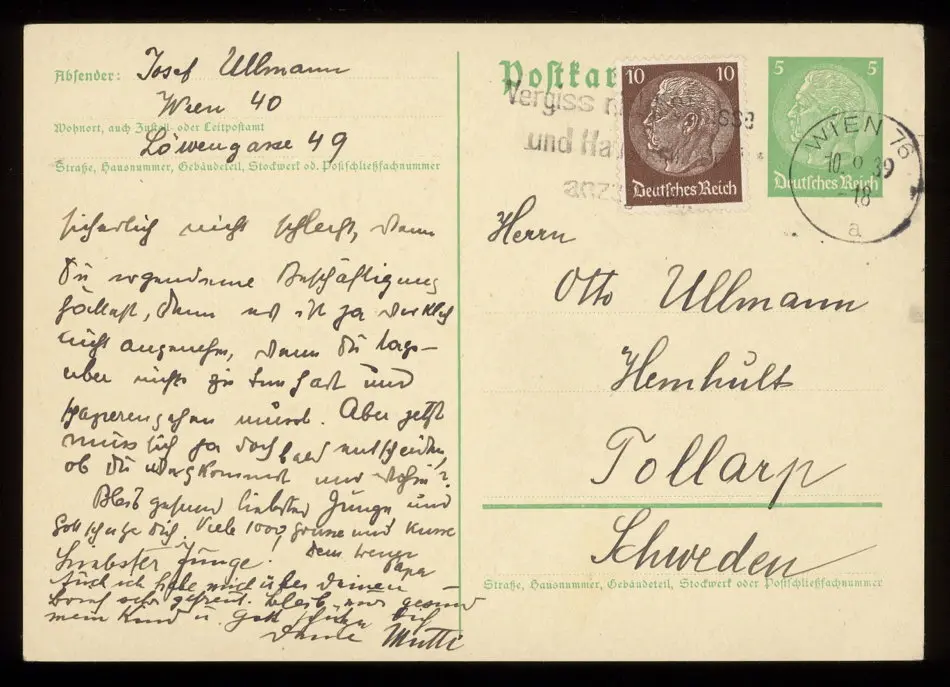 Absender: Josef Ullmann
Wien 40
Wohnort, auch Zustell- oder Leitpostamt
Löwengasse 49
Straße, Hausnummer, Gebäudeteil, Stockwerk od. Postschließfachnummer
sicherlich nicht schlecht, wenn
Du irgendeine Beschäftigung
hättest, denn es ist ja wirklich
nicht angenehm, wenn Du tags-
über nichts zu tun hast und
spazierengehen musst. Aber jetzt
muss sich ja doch bald entscheiden,
ob Du wegkommst und wohin?
Bleib gesund liebster Junge und
Gott schütze Dich. Viele 1000 Grüsse und Küsse
Liebster Junge. Dein
Papa
Auch ich habe mich über Deinen
sehr gefreut. bleib nur gesund
mein Kind u. Gott schütze Dich
Deine Mutti
Postkar
10 10
Deutsches Reich
5 5
Deutsches Reich
Vergiss
und Ha
WIEN 76
10. 39
18
a
Herrn
Otto Ullmann
Hemhult
Tollarp
Schweden
Straße, Hausnummer, Gebäudeteil, Stockwerk oder Postschließfachnummer